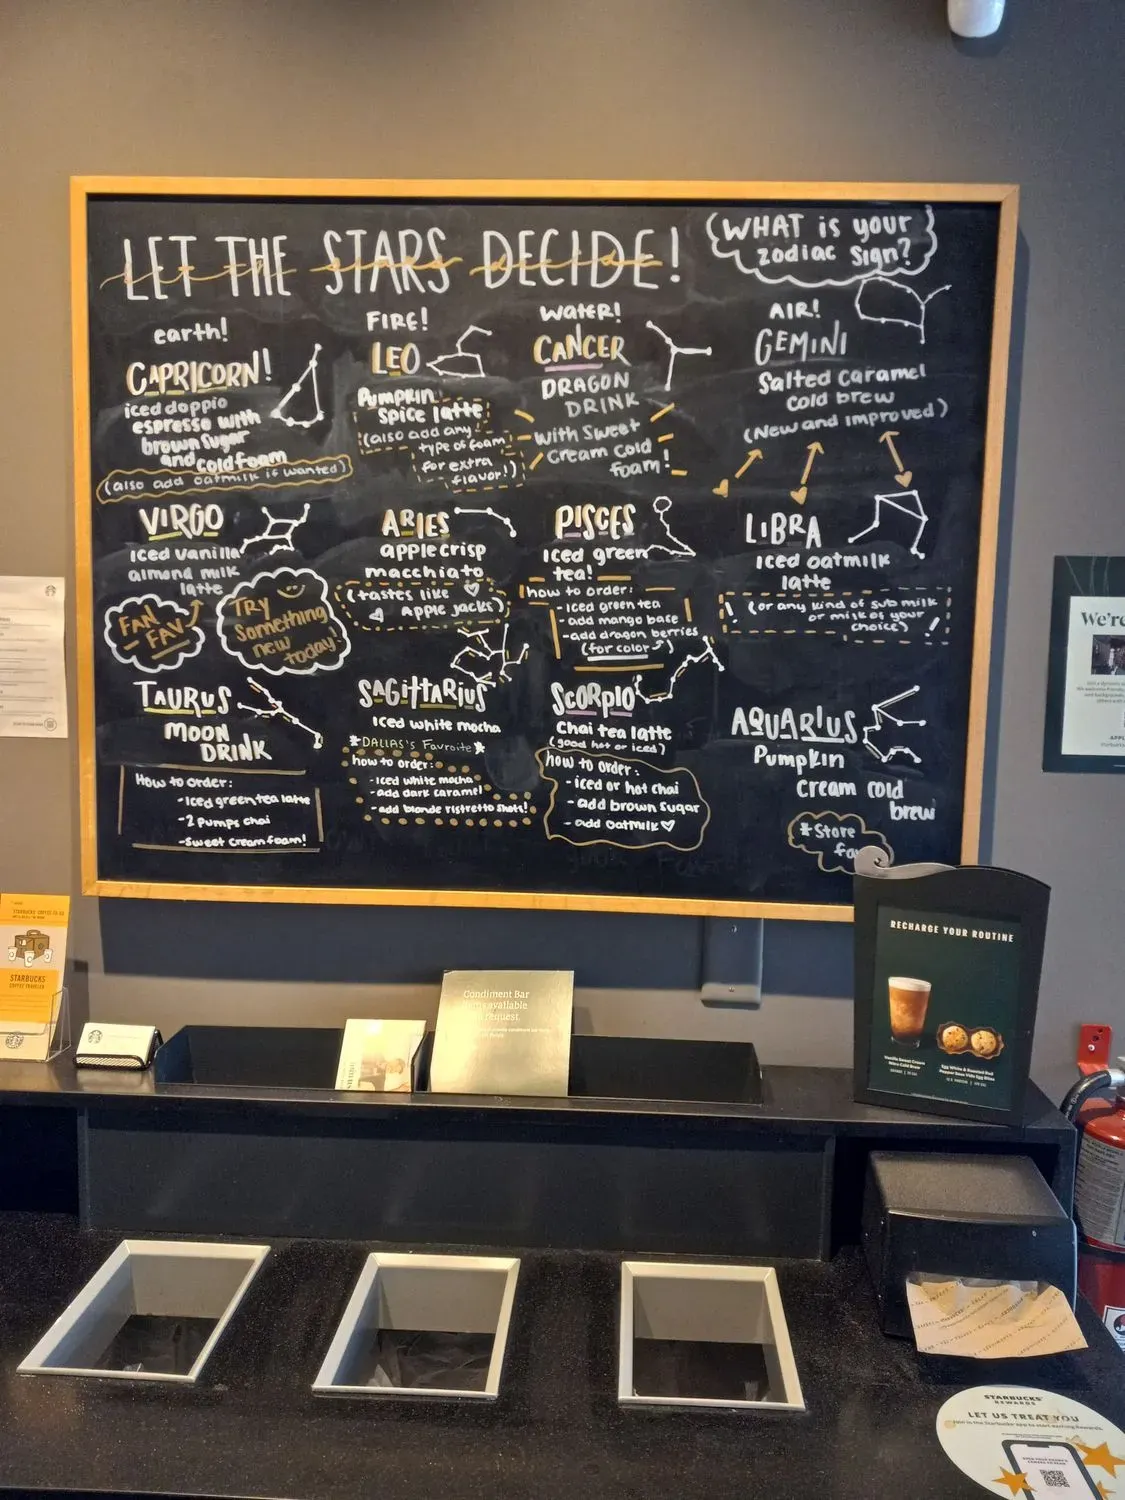 LET THE STARS DECIDE!
WHAT is your
zodiac sign?
earth!
CAPRICORN!
iced doppio
espresso with
brown sugar
and cold foam
(also add oatmilk if wanted)
VIRGO
iced vanilla
almond milk
latte
FAN
FAV
TRY
Something
new
today!
TAURUS
MOON
DRINK
How to order:
-Iced green tea latte
-2 pumps chai
-sweet cream foam!
FIRE!
LEO
Pumpkin
Spice latte
(also add any
type of foam
for extra
flavor!)
ARIES
apple crisp
macchiato
(tastes like
Apple Jacks)
SAGITTARIUS
Iced white mocha
*DALLAS's Favroite*
how to order:
-iced white mocha
-add dark caramel
-add blonde ristretto shots!
WATER!
CANCER
DRAGON
DRINK
with Sweet
Cream cold
foam!
PISCES
Iced green
tea!
how to order:
-iced green tea
-add mango base
-add dragon berries
(for color)
SCORPIO
Chai tea latte
(good hot or iced)
how to order:
-iced or hot chai
-add brown sugar
-add oatmilk
AIR!
GEMINI
Salted caramel
cold brew
(New and improved)
LIBRA
iced oatmilk
latte
! (or any kind of sub milk
or milk of your
choice) !
AQUARIUS
Pumpkin
Cream cold
brew
*Store
We're
STARBUCKS
COFFEE TRAVELER
Condiment Bar
available
request.
RECHARGE YOUR ROUTINE
Vanilla Sweet Cream
Nitro Cold Brew
Egg White & Roasted Red
Pepper Sous Vide Egg Bites
STARBUCKS
REWARDS
LET US TREAT YOU
Join in the Starbucks app to start earning Rewards.